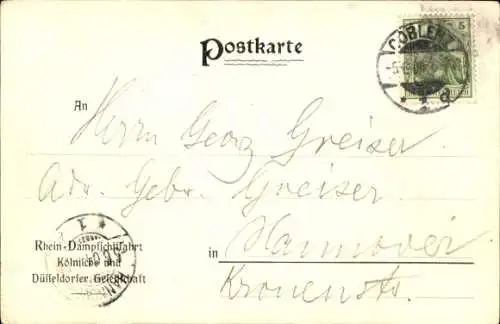 Postkarte
COBLENZ
5
d
An
Herrn Georg Greiser.
Adr. Gebr. Greiser.
in Hannover
Kronenstr.
Rhein-Dampfschiffahrt
Kölnische und
Düsseldorfer Gesellschaft